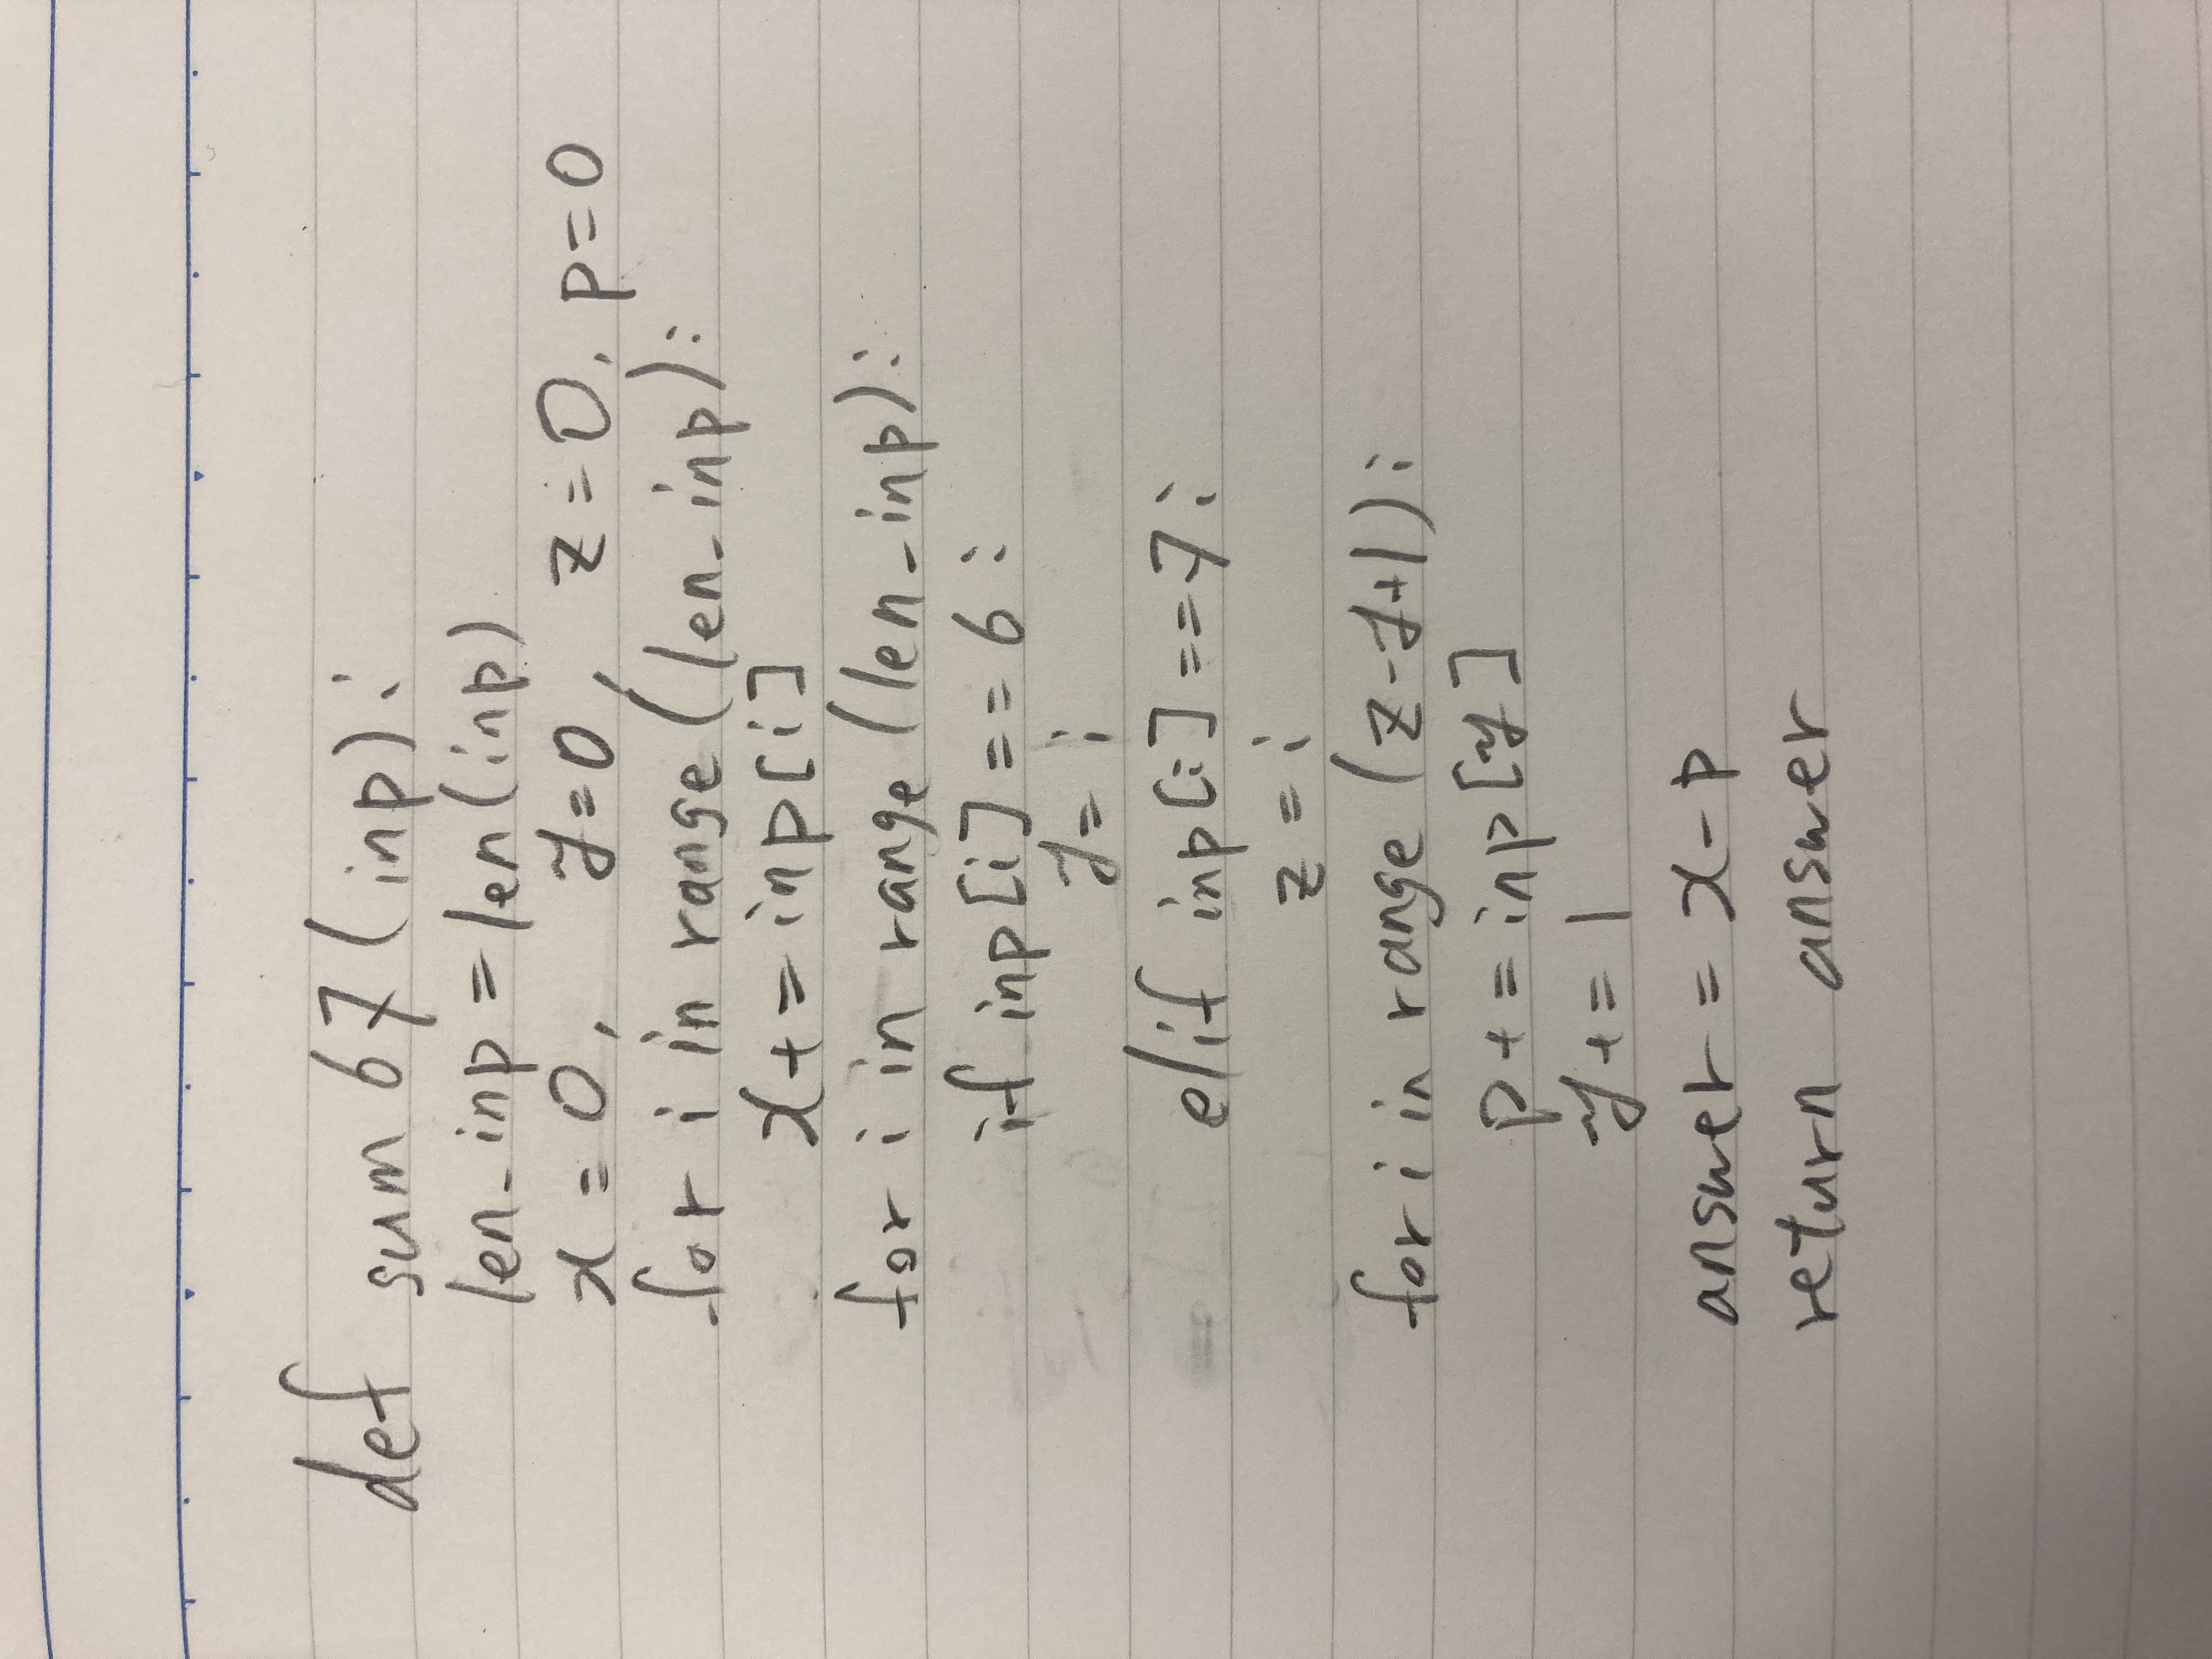 def sum67(inp):
len_inp = len(inp)
x=0, y=0, z=0, p=0
for i in range(len_inp):
x+=inp[i]
for i in range(len_inp):
if inp[i]==6:
y=i
elif inp[i]==7:
z=i
for i in range(z-y+1):
p+=inp[y]
y+=1
answer=x-p
return answer